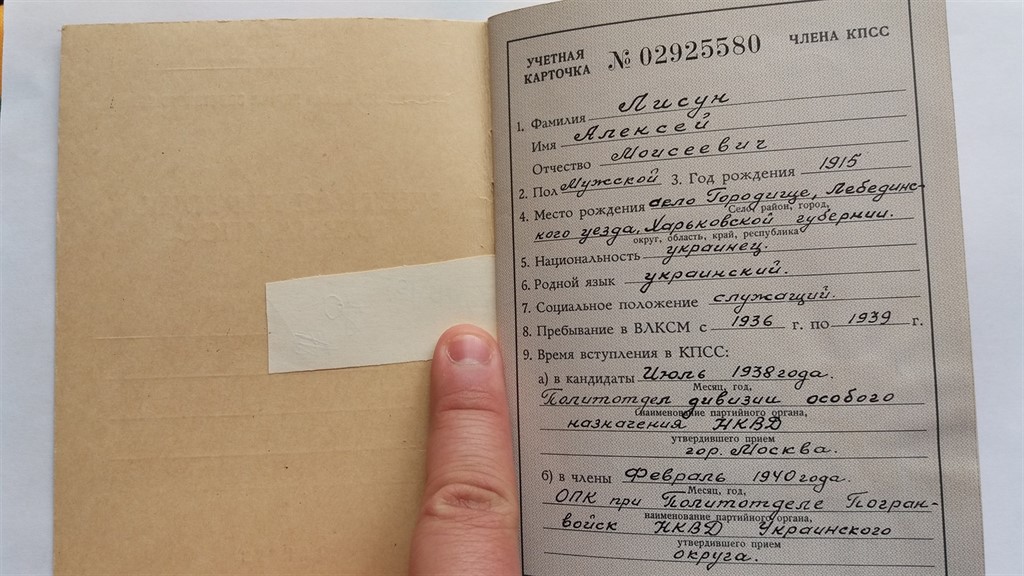 УЧЕТНАЯ КАРТОЧКА № 02925580 ЧЛЕНА КПСС
1. Фамилия Лисун
Имя Алексей
Отчество Моисеевич
2. Пол Мужской 3. Год рождения 1915
4. Место рождения село Городище, Лебединс-
Село, район, город,
кого уезда, Харьковской губернии.
округ, область, край, республика
5. Национальность украинец.
6. Родной язык украинский.
7. Социальное положение служащий.
8. Пребывание в ВЛКСМ с 1936 г. по 1939 г.
9. Время вступления в КПСС:
а) в кандидаты Июль 1938 года.
Месяц, год,
Политотдел дивизии особого
наименование партийного органа,
назначения НКВД
утвердившего прием
гор. Москва.
б) в члены Февраль 1940 года.
Месяц, год,
ОПК при Политотделе Погран-
наименование партийного органа,
войск НКВД Украинского
утвердившего прием
округа.